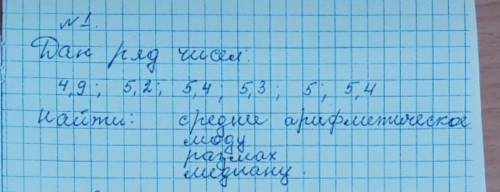 №1.
Дан ряд чисел:
4,9; 5,2; 5,4; 5,3; 5; 5,4
Найти: среднее арифметическое
моду
размах
медиану.